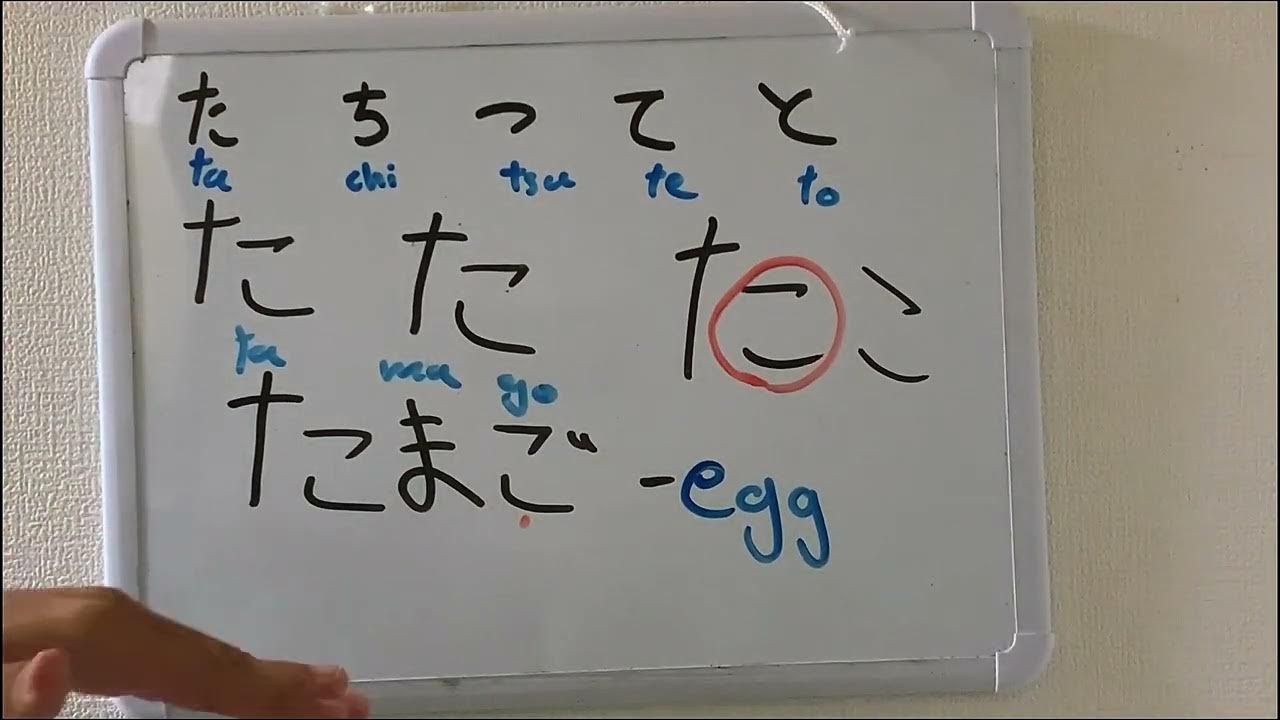 た ち つ て と
ta chi tsu te to
た た たこ
ta ma go
たまご -egg